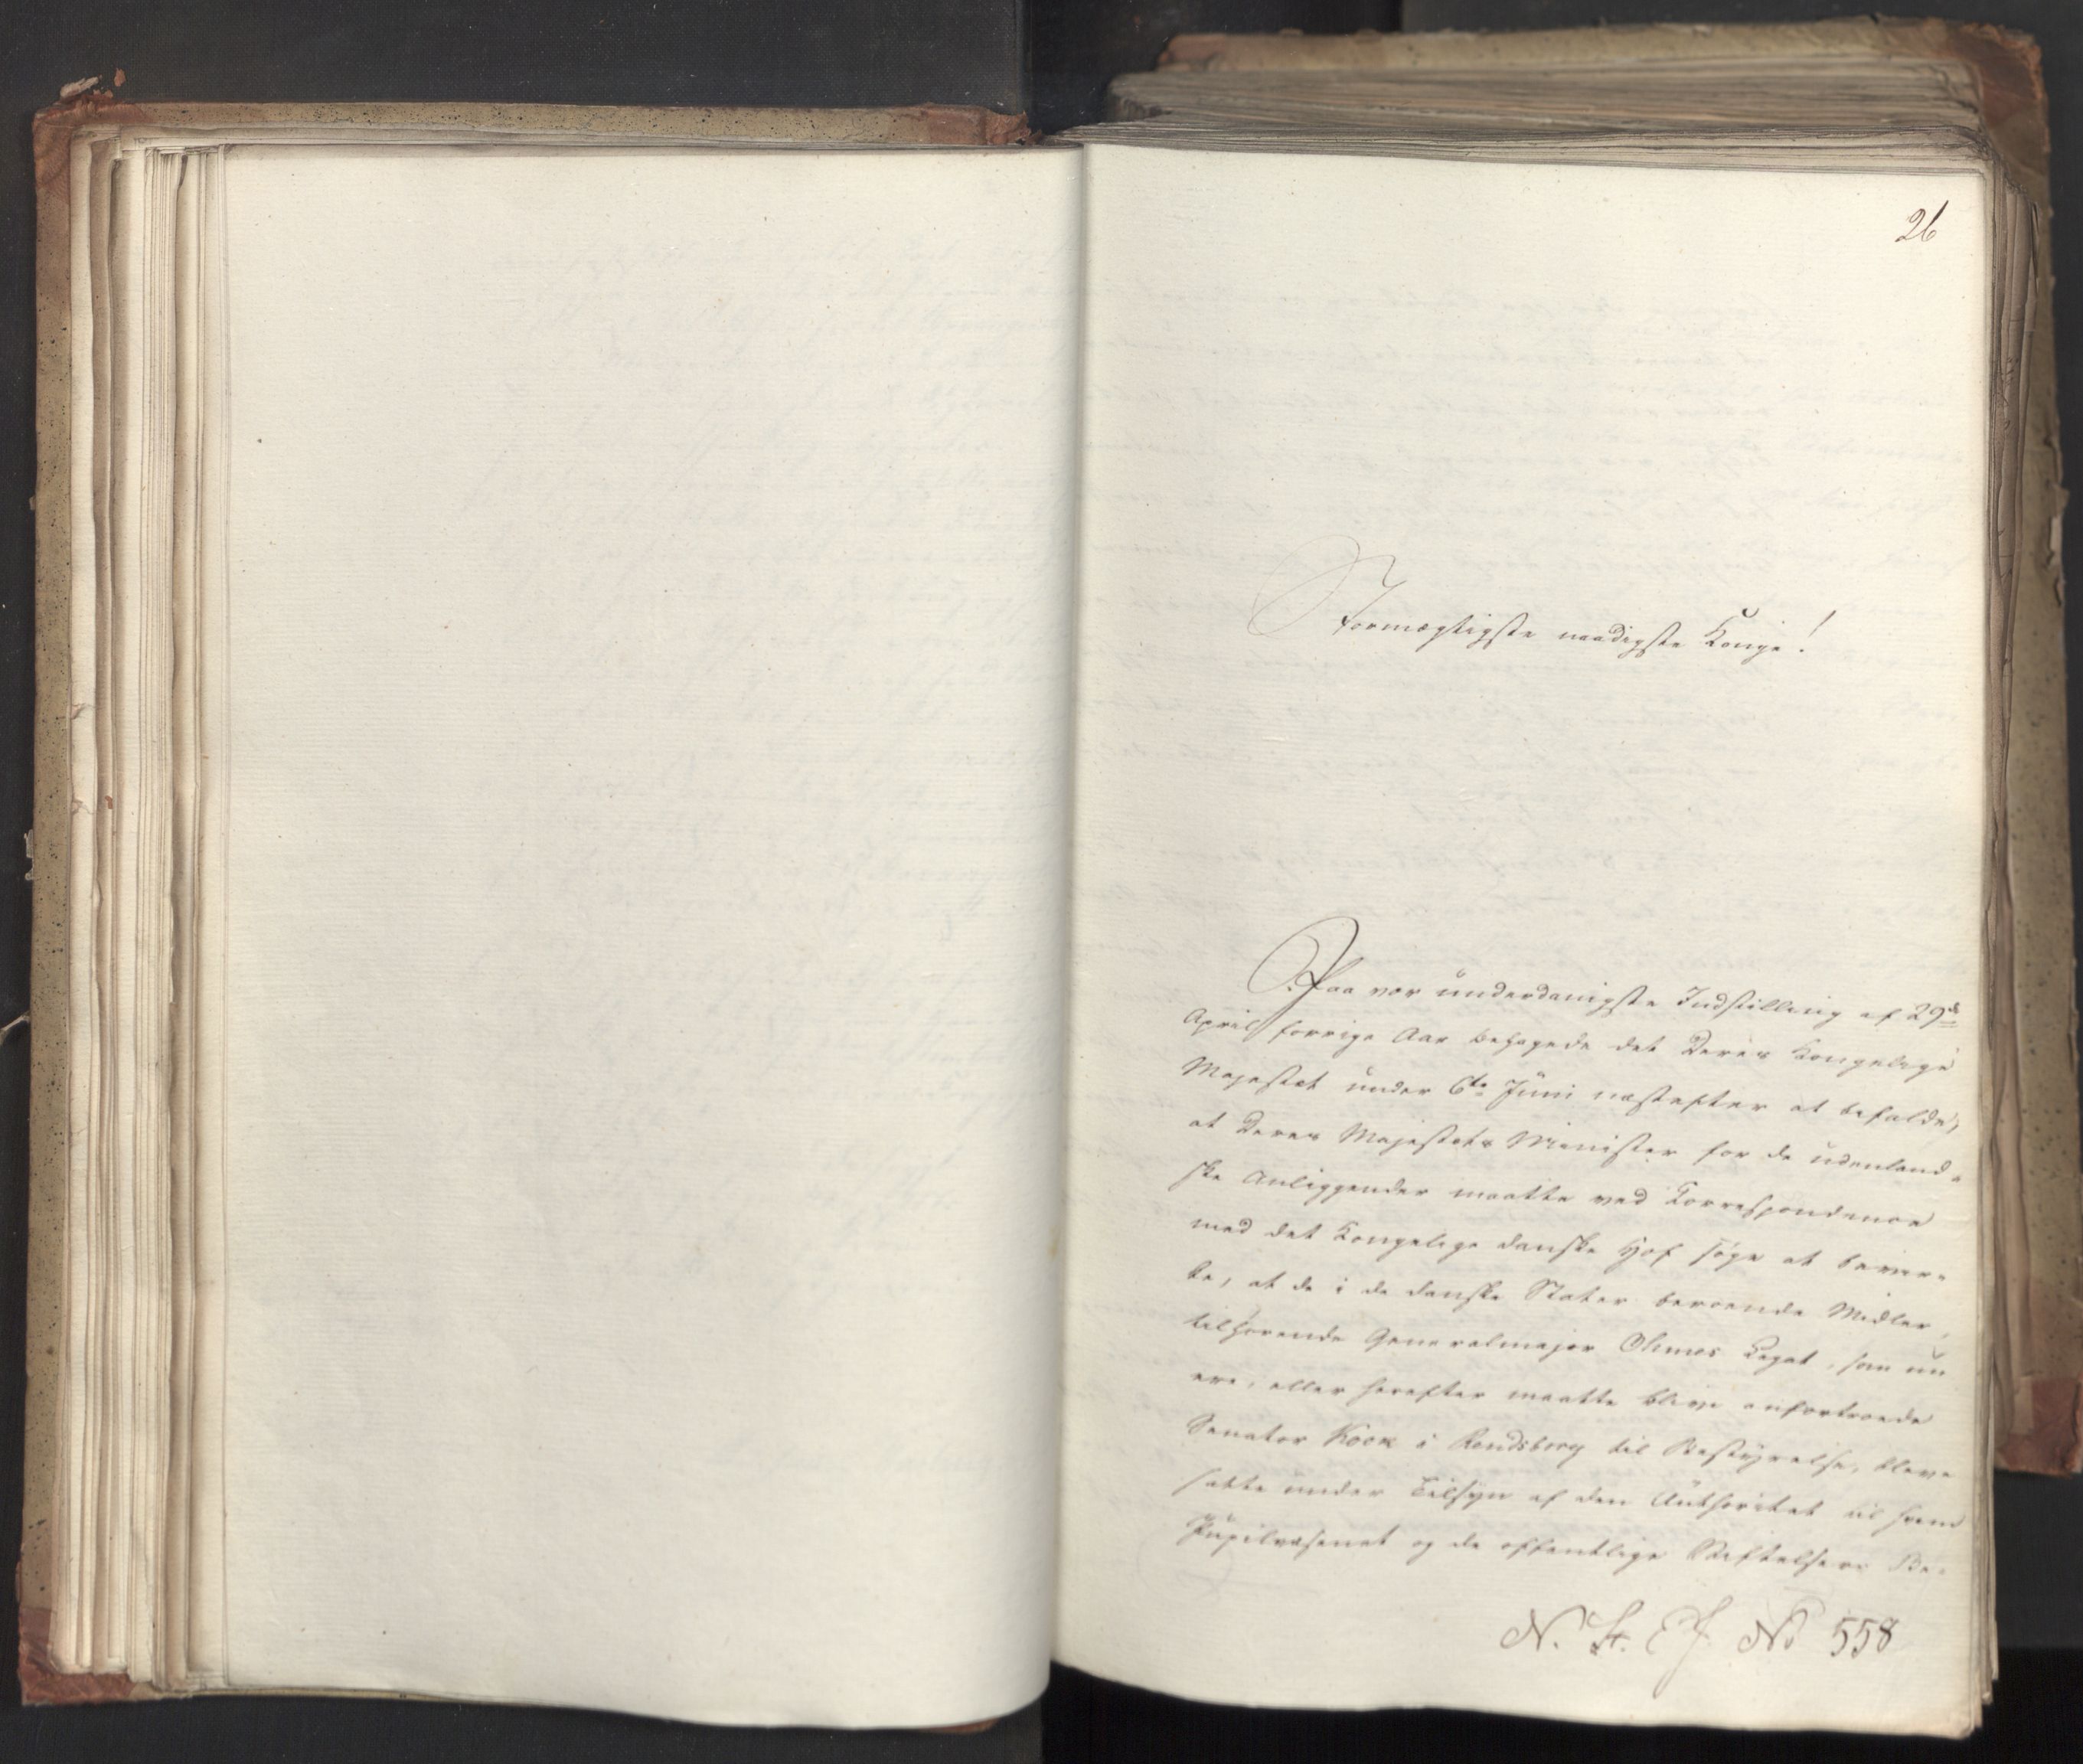 26
Stormægtigste naadigste Konge!
Paa vor underdanigste Indstilling af 29de
April forrige Aar behagede det Deres Kongelige
Majestæt under 6te Juni næstefter at befalde,
at Deres Majestæts Minister for de udenland-
ske Anliggender maatte ved Korrespondence
med det Kongelige danske Hof søge at bevir-
ke, at de i de danske Stater beroende Midler,
tilhørende Generalmajor Ohmes Legat, som nu
ere, eller herefter maatte blive anfortroede
Senator Kock i Rendsborg til Bestyrelse, bleve
satte under Tilsyn af den Authoritet til hvem
Pupilvæsenet og de offentlige Stiftelsers Be-
N. St. E J. No 558